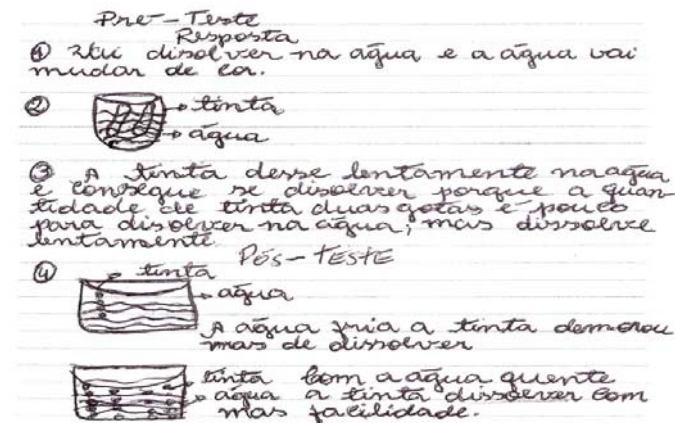 Pré-Teste
Resposta
① Vai disolver na água e a água vai
mudar de cor.
② tinta
água
③ A tinta desse lentamente na água
e consegue se disolver porque a quan-
tidade de tinta duas gotas é pouco
para disolver na água, mas dissolve
lentamente
Pós-TESTE
④ tinta
água
A água fria a tinta demorou
mas de dissolver
tinta Com a água quente
água a tinta dissolver com
mas facilidade.